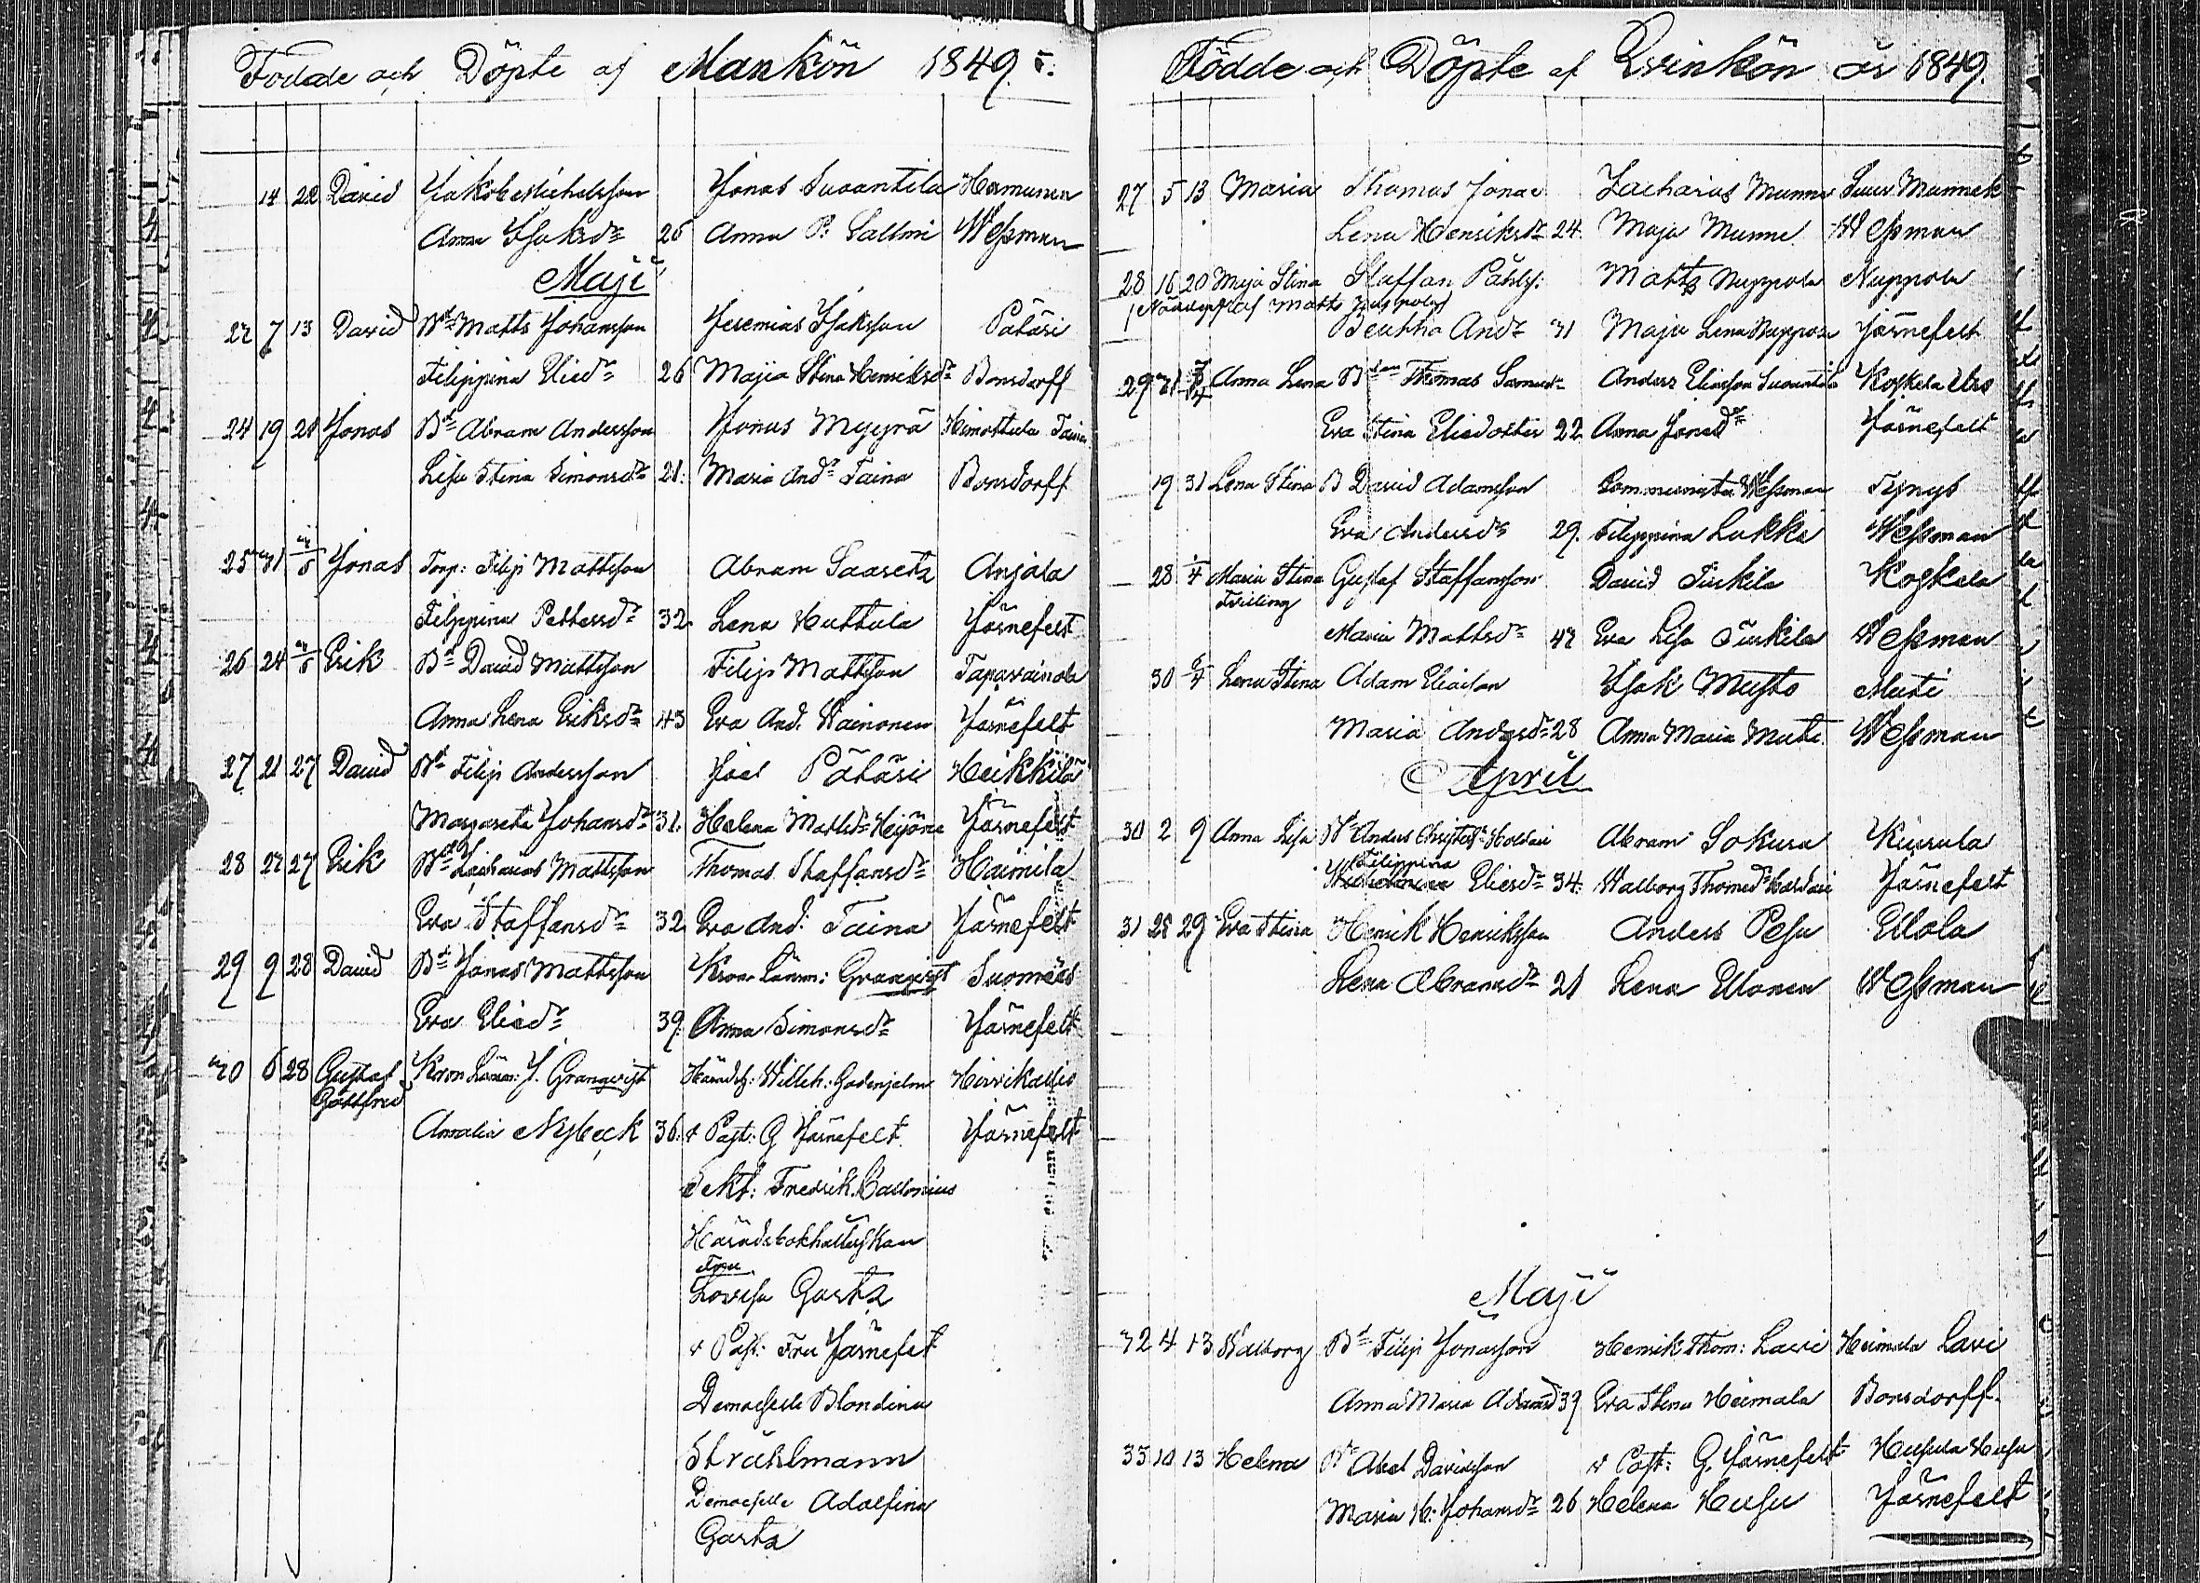 Födde och Döpte af Mankön 1849.
14 22 David Jakob Michelsson Jonas Suoantila Hermunen
Anna Isaksdr 26 Anna P: Sallmi Wessman
Maji
7 13 David Bd Matts Johansson Jeremias Isaksson Pätäri
Filippina Eliedr 26 Majia Stina Henriksdr Bonsdorff
24 19 21 Jonas Bd Abram Andersson Jonas Myyrä Himottula Taina
Lisa Stina Simonsdr 21. Maria Andr Taina Bonsdorff
25 31 3/6 Jonas Torp: Filip Mattsson Abram Saaretz Anjala
Filippina Pettersdr 32. Lena Huttula Järnefelt
26 24 3/6 Erik Bd David Mattsson Filip Mattsson Taparainola
Anna Lena Eriksdr 43 Eva And. Wainonen Järnefelt
27 21 27 David Bd Filip Andersson Joel Pätäri Heikkilä
Margareta Johansdr 31. Helena Mattsdr Järnefelt
28 27 Erik Bd Zacharias Mattsson Thomas Staffansdr Haimila
Eva Staffansdr 32 Eva And: Taina Järnefelt
29 9 28 David Bd Jonas Mattsson Kron Länsm: Granqvist Suomäs
Eva Eliedr 39. Anna Simonsdr Järnefelt
30 6 28 Gustaf Gottfried Kron Länsm: J. Granqvist Häradsh: Wilh: Gadenjelm Hirvikallio
Amalia Nybeck 36. v Past: G Järnefelt Järnefelt
Sekt: Fredrik Callonius
Häradsbokhållerskan
Fru
Lovisa Gartz
v Past: Fru Järnefelt
Demoiselle Blondina
Stråhlmann
Demoiselle Adolfina
Gartz
Födde och Döpte af Qvinkön år 1849.
27 5 13 Maria Thomas Jonae Zacharias Munne Suur Munnek
Lena Henriksdr 24. Maja Munne Wessman
28 16 20 Maja Stina Staffan Påhls: Matts Nuppola Nuppola
Beatha Andr 31 Maja Lena Nuppola Järnefelt
29 31 Anna Lena Bd Thomas Samuels Anders Eliasson Suoantila Koskela Uro
Eva Stina Eliedotter 22 Anna Jonaedr Järnefelt
19 31 Lena Stina B David Adamsson Comminister Wessman Tynys
Eva Andersdr 29. Filippina Lukka Wessman
28 1/4 Maria Stina Gustaf Staffansson David Tiukila Koskela
Tvilling
Maria Mattsdr 43 Eva Lisa Tiukila Wessman
30 Lena Stina Adam Eliasson Isak Musto Muti
Maria Andersdr 28 Anna Maria Muti Wessman
April
30 2 9 Anna Lisa Bd Anders Christofs: Holdari Abram Sokura Kiurula
Filippina
Eliesdr 34. Walborg Thomedr Järnefelt
31 28 29 Eva Stina Henrik Henriksson Anders Pesu Ellola
Lena Abramsdr 21 Lena Ellonen Wessman
Maji
32 4 13 Walborg Bd Filip Jonasson Henrik Thom: Lavi Heimala Lavi
Anna Maria Adamsd 39 Eva Stina Heimala Bonsdorff.
33 10 13 Helena Bd Abel Davidsson v Past: G. Järnefelt Husula Husu
Maria H: Johansdr 26 Helena Husu Järnefelt